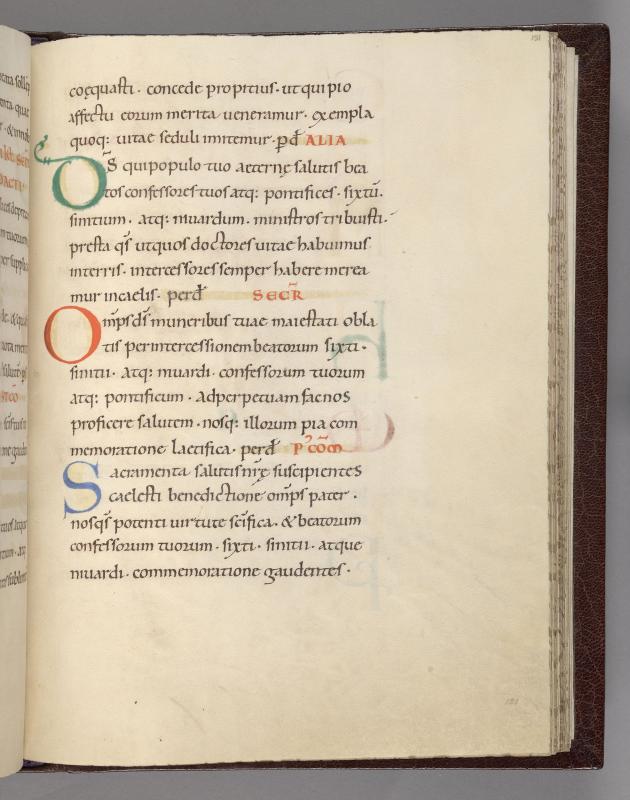 coęquasti · concede propitius · ut qui pio
affectu eorum merita ueneramur · exempla
quoq: uitae seduli imitemur · pd̄ ALIA
Ds̄ qui populo tuo aeternę salutis bea
tos confessores tuos atq: pontifices · sixtū ·
sinitium · atq: niuardum · ministros tribuisti ·
presta qs̄ ut quos doctores uitae habuimus
in terris · intercessores semper habere merea
mur in caelis · perd̄ SECR̄
Omps ds̄ muneribus tuae maiestati obla
tis per intercessionem beatorum sixti ·
sinitii · atq: niuardi · confessorum tuorum
atq: pontificum · ad perpetuam fac nos
proficere salutem · nosq: illorum pia com
memoratione laetifica · perd̄ P' cōm
Sacramenta salutis nr̄ę suscipientes
caelesti benedictione omps pater ·
nos qs̄ potenti uirtute sc̄ifica · & beatorum
confessorum tuorum · sixti · sinitii · atque
niuardi · commemoratione gaudentes ·